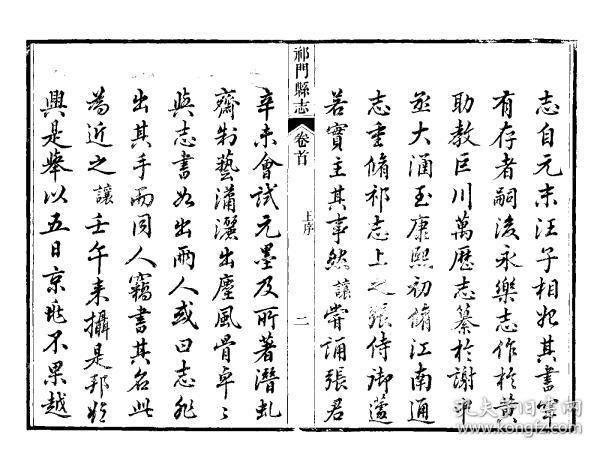 志自元末汪子相始其書罕
有存者嗣後永樂志作於黃
助教巨川萬歷志纂於謝中
丞大涵至康熙初脩江南通
志重脩祁志上之張侍御瑗
若實主其事然讓嘗誦張君
祁門縣志
卷首
上序
二
辛未會試元墨及所著潛虬
齋制藝瀟灑出塵風骨卓〻
與志書如出兩人或曰志非
出其手而同人竊書其名此
為近之讓壬午來攝是邦
興是舉以五日京兆不果越
孔夫子旧书网
www.kongfz.com